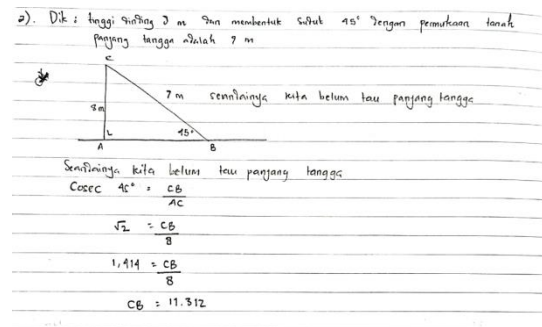 2). Dik : tinggi dinding 8 m dan membentuk sudut 45° dengan permukaan tanah
panjang tangga adalah 7 m
C
7 m seandainya kita belum tau panjang tangga
8m
45°
A
B
Seandainya kita belum tau panjang tangga
Cosec 45° = CB
AC
√2 = CB
8
1,414 = CB
8
CB = 11.312